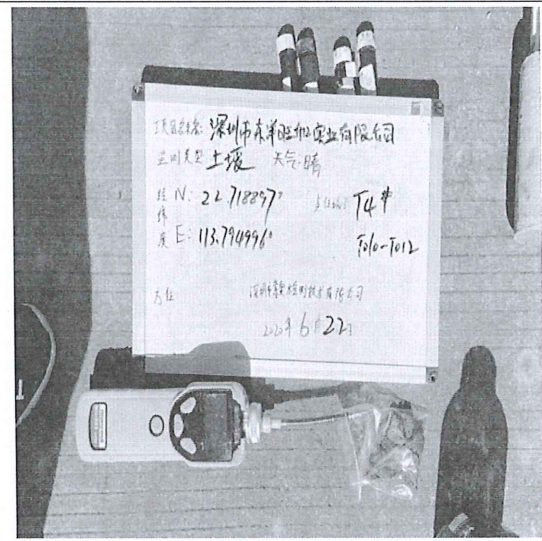 项目名称: 深圳市东洋旺和实业有限公司
监测类型 土壤 天气:晴
经 N: 22.718897° 点位: T4#
纬
度 E: 113.794996° T010-T012
方位
深圳市 检测技术有限公司
2020年6月22日